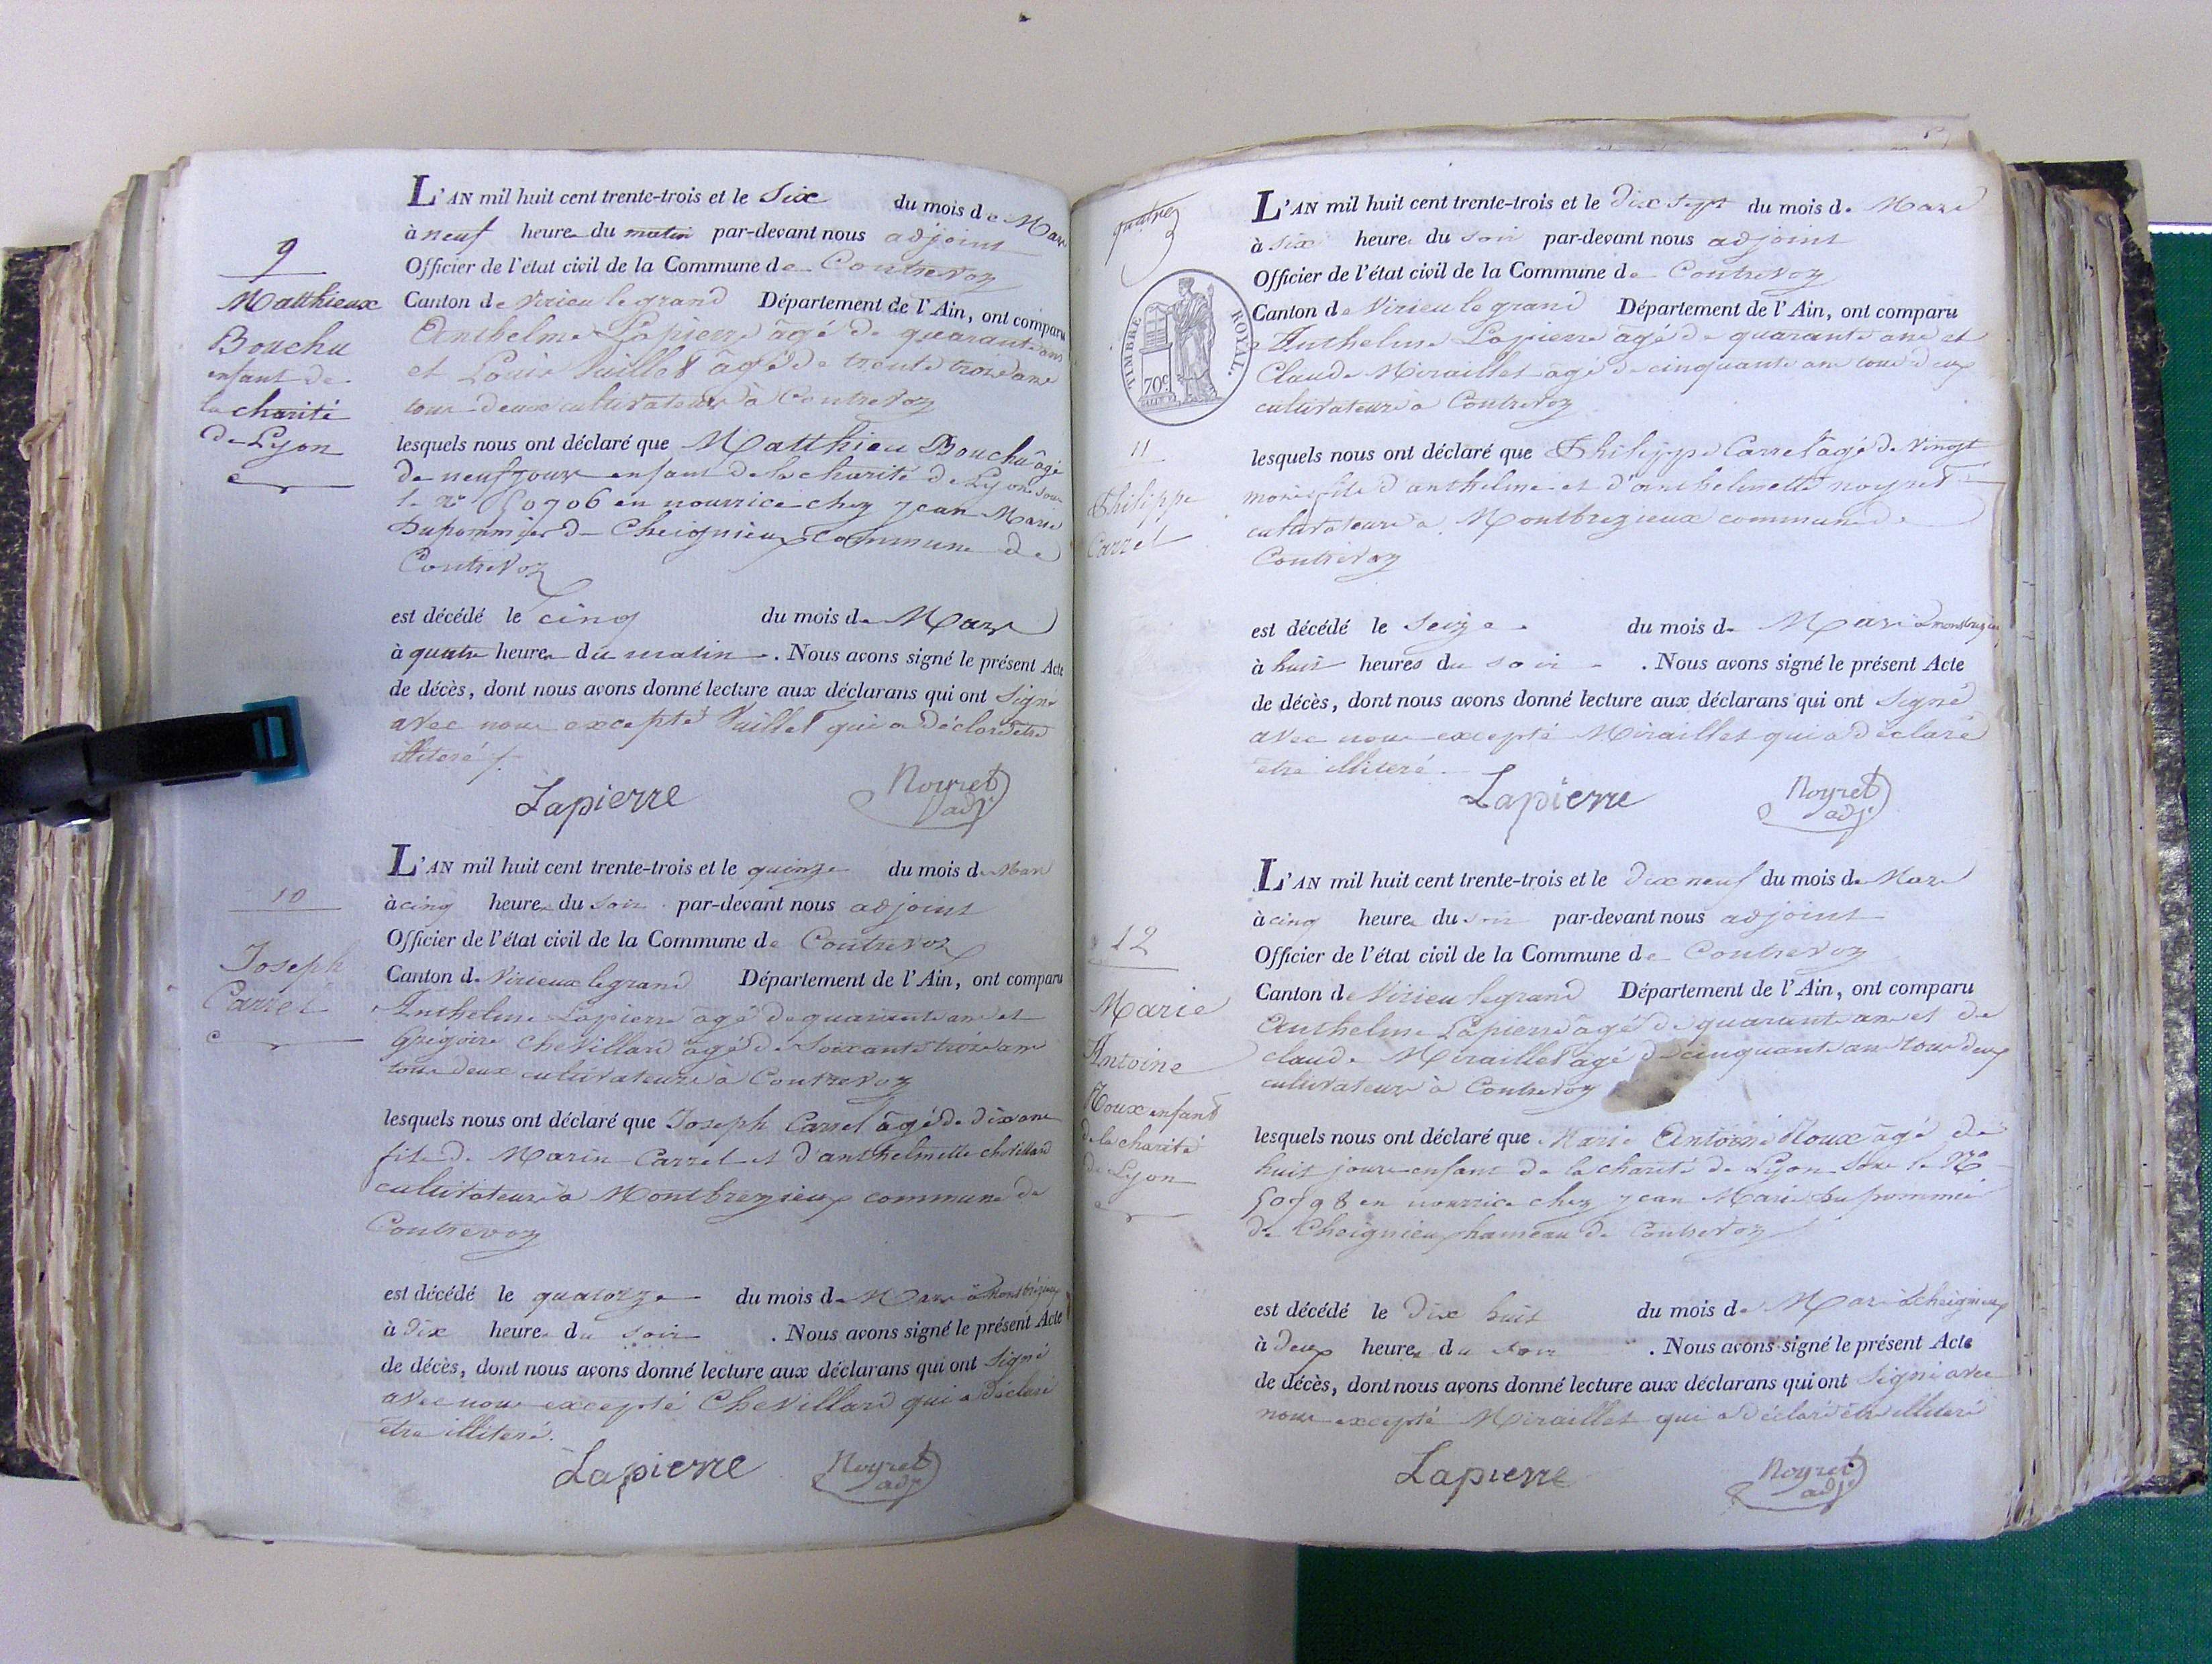 9
Matthieux
Bouchu
enfant de
la charité
de Lyon
L'AN mil huit cent trente-trois et le Six du mois de Mars
à neuf heures du matin par-devant nous adjoint
Officier de l'état civil de la Commune de Contrevoz
Canton de Virieu le grand Département de l'Ain, ont comparu
Anthelme Lapierre âgé de quarante ans
et Louis Vuillet âgé de trente trois ans
tous deux cultivateurs à Contrevoz
lesquels nous ont déclaré que Matthieu Bouchu âgé
de neuf jours enfant de la charité de Lyon sous
le no 50706 en nourrice chez jean Marie
Dupommier de Cheignieux commune de
Contrevoz
est décédé le cinq du mois de Mars
à quatre heures du matin. Nous avons signé le présent Acte
de décès, dont nous avons donné lecture aux déclarans qui ont signé
avec nous excepté Vuillet qui a déclaré être
illiteré
Lapierre Noyret
adj
10
Joseph
Carrel
L'AN mil huit cent trente-trois et le quinze du mois de Mars
à cinq heures du soir par-devant nous adjoint
Officier de l'état civil de la Commune de Contrevoz
Canton de Virieux le grand Département de l'Ain, ont comparu
Anthelme Lapierre âgé de quarante ans et
Grégoire Chevillard âgé de soixante trois ans
tous deux cultivateurs à Contrevoz
lesquels nous ont déclaré que Joseph Carrel âgé de dix ans
fils de Marin Carrel et d'anthelmette chevillard
cultivateurs à Montbrezieux commune de
Contrevoz
est décédé le quatorze du mois de Mars à Montbrezieux
à dix heures du soir. Nous avons signé le présent Acte
de décès, dont nous avons donné lecture aux déclarans qui ont signé
avec nous excepté Chevillard qui a déclaré
être illiteré.
Lapierre Noyret
adj
quatre
TIMBRE ROYAL.
70c
11
Philippe
Carrel
L'AN mil huit cent trente-trois et le dix sept du mois de Mars
à six heures du soir par-devant nous adjoint
Officier de l'état civil de la Commune de Contrevoz
Canton de Virieu le grand Département de l'Ain, ont comparu
Anthelme Lapierre âgé de quarante ans et
Claude Miraillet âgé de cinquante ans tous deux
cultivateurs à Contrevoz
lesquels nous ont déclaré que Philippe Carrel âgé de vingt
mois fils d'anthelme et d'anthelmette noyret
cultivateurs à Montbrezieux commune de
Contrevoz
est décédé le seize du mois de Mars à montbrezieux
à huit heures du soir. Nous avons signé le présent Acte
de décès, dont nous avons donné lecture aux déclarans qui ont signé
avec nous excepté Miraillet qui a déclaré
être illiteré
Lapierre Noyret
adj
12
Marie
Antoine
Roux enfant
de la charité
de Lyon
L'AN mil huit cent trente-trois et le dix neuf du mois de Mars
à cinq heures du soir par-devant nous adjoint
Officier de l'état civil de la Commune de Contrevoz
Canton de Virieu le grand Département de l'Ain, ont comparu
Anthelme Lapierre âgé de quarante ans et de
claude Miraillet âgé de cinquante ans tous deux
cultivateurs à Contrevoz
lesquels nous ont déclaré que Marie Antoine Roux âgé de
huit jours enfant de la charité de Lyon sous le No
50798 en nourrice chez jean Marie Dupommié
de Cheignieux hameau de Contrevoz
est décédé le dix huit du mois de Mars à cheignieux
à deux heures du soir. Nous avons signé le présent Acte
de décès, dont nous avons donné lecture aux déclarans qui ont signé avec
nous excepté Miraillet qui a déclaré être illiteré
Lapierre Noyret
adj